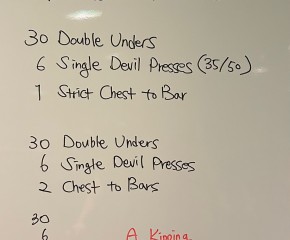 30 Double Unders
6 Single Devil Presses (35/50)
1 Strict Chest to Bar
30 Double Unders
6 Single Devil Presses
2 Chest to Bars
30
6 A Kipping